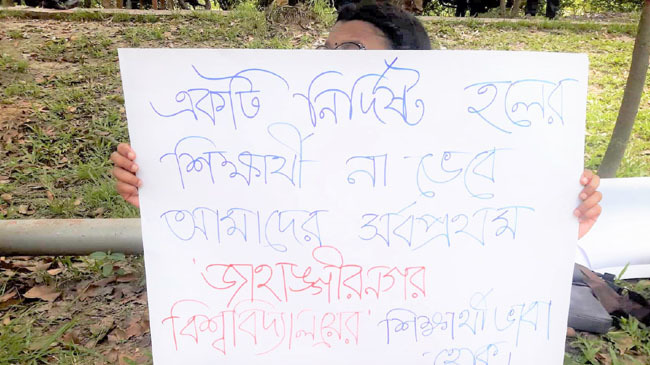 একটি নির্দিষ্ট হলের
শিক্ষার্থী না ভেবে
আমাদের সর্বপ্রথম
'জাহাঙ্গীরনগর
বিশ্ববিদ্যালয়ের' শিক্ষার্থী ভাবা
হোক।